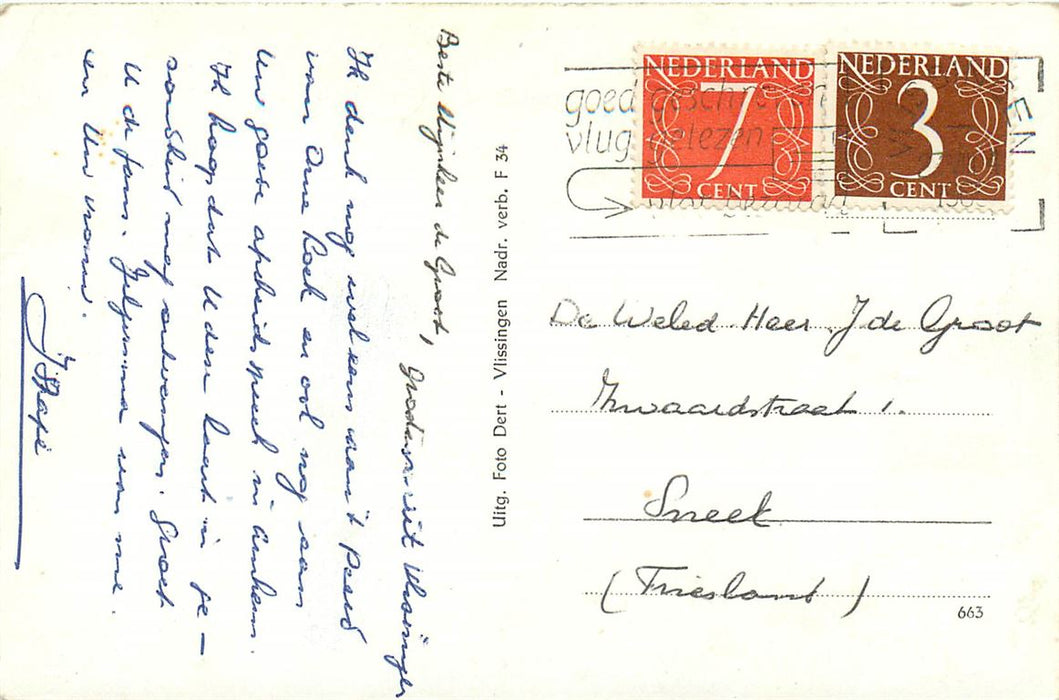 Beste Mijnheer de Groot,
Groeten uit Vlissingen
Ik denk nog wel eens aan 't paard
van Ome Koek en ook nog aan
Uw goede afscheidsspeech in Arnhem.
Ik hoop dat U deze kaart in ge-
zondheid mag ontvangen. Groet
U de fam. Jelgersma van me
en Uw vrouw.
Uitg. Foto Dert - Vlissingen Nadr. verb. F 34
NEDERLAND
7
CENT
NEDERLAND
3
CENT
goed geschreven
vlug gelezen
De Weled. Heer J de Groot
Zwaardstraat 1.
Sneek
(Friesland)
663